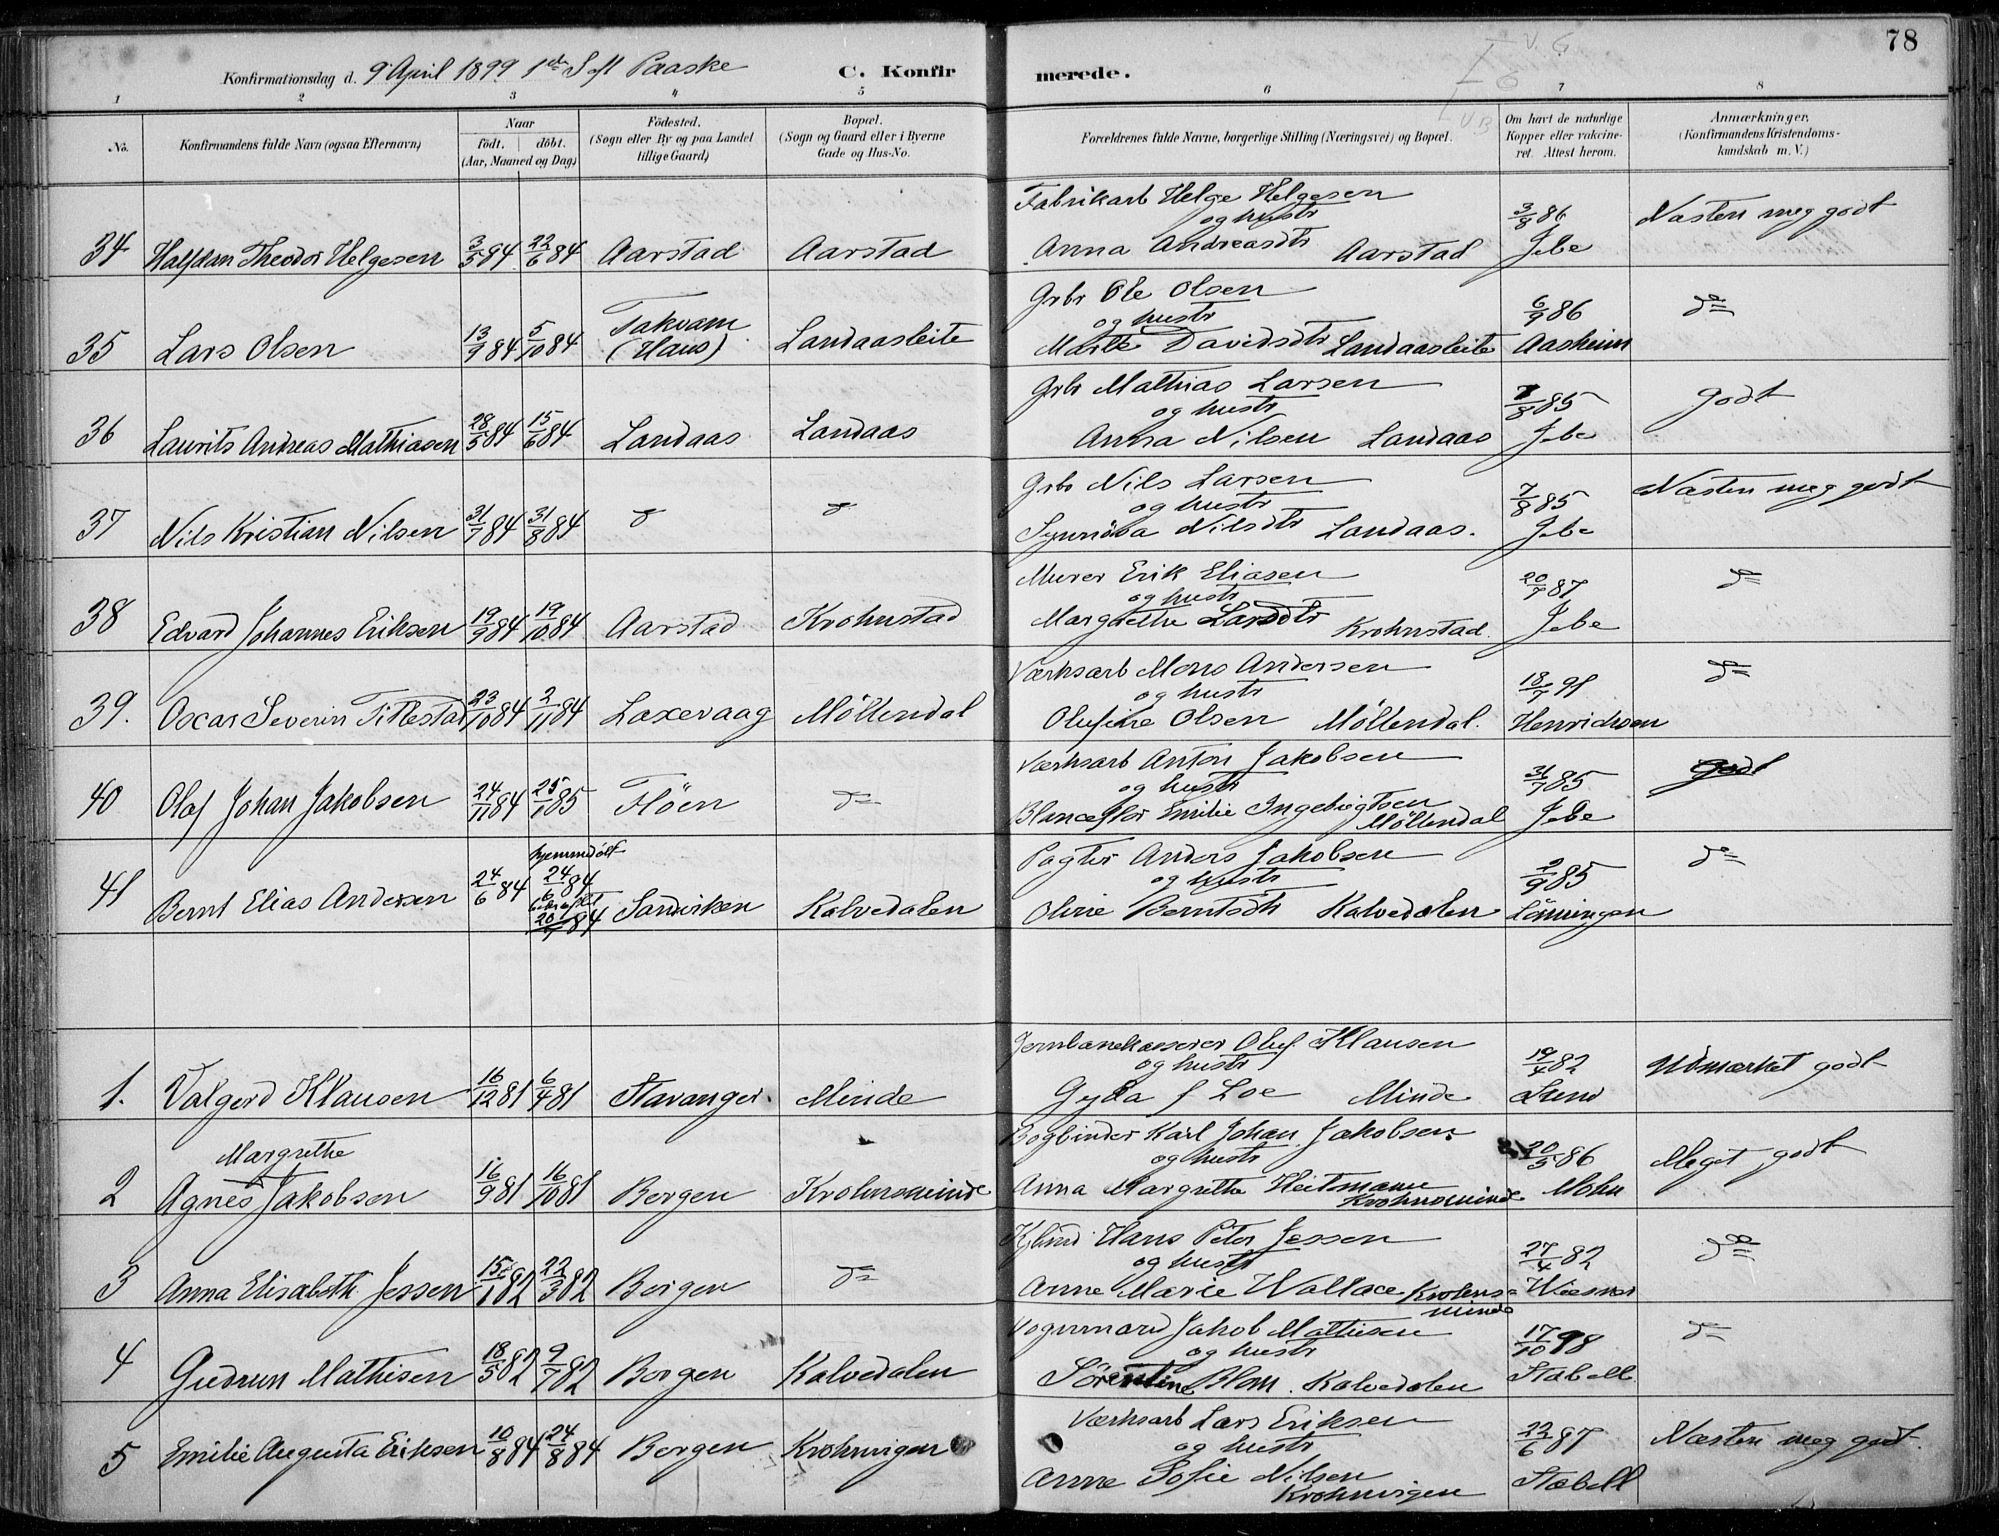 78
Konfirmationsdag d. 9 April 1899 1ste S eft Paaske
C. Konfir merede.
1 2 3 4 5 6 7 8
No. Konfirmandens fulde Navn (ogsaa Efternavn) Naar födt. döbt. (Aar, Maaned og Dag) Födested. (Sogn eller By og paa Landet tillige Gaard) Bopæl. (Sogn og Gaard eller i Byerne Gade og Hus-No. Forældrenes fulde Navne, borgerlige Stilling (Næringsvei) og Bopæl. Om havt de naturlige Kopper eller vakcineret. Attest herom. Anmærkninger. (Konfirmandens Kristendomskundskab m. V.)
Fabrikarb Helge Helgesen
og hustr
34 Halfdan Theodor Helgesen 3/5 84 22/6 84 Aarstad Aarstad Anna Andreasdtr Aarstad 3/8 86 Jebe Næsten meg godt
Grbr Ole Olsen
og hustr
35 Lars Olsen 13/9 84 5/10 84 Takvam (Haus) Landaasleite Marte Davidsdtr Landaasleite 6/9 86 Aasheim do
Grbr Mathias Larsen
og hustr
36 Laurits Andreas Mathiasen 28/5 84 15/6 84 Landaas Landaas Anna Nilsen Landaas 7/8 85 Jebe godt
Grbr Nils Larsen
og hustr
37 Nils Kristian Nilsen 31/7 84 31/8 84 do do Synnöva Nilsdtr Landaas. 7/8 85 Jebe Næsten meg godt
Murer Erik Eliasen
og hustr
38 Edvard Johannes Eriksen 19/9 84 19/10 84 Aarstad Krohnstad Margrethe Larsdtr Krohnstad. 20/7 87 Jebe do
Værksarb Mons Andersen
og hustr
39. Oscar Severin Tittestad 23/10 84 2/11 84 Laxevaag Möllendal Olufine Olsen Möllendal. 18/7 98 Henrichsen do
Værksarb Anton Jakobsen
og hustr
40 Olaf Johan Jakobsen 24/11 84 25/1 85 Flöen do Blanceflor Emilie Ingebrigtsen Möllendal 31/7 85 Jebe godt
Pagter Anders Jakobsen
og hustr
41 Bernt Elias Andersen 24/6 84 hjemmedöbt 24/6 84 bekræftet 20/7 84 Sandviken Kalvedalen Oline Berntsdtr Kalvedalen 2/9 85 Lönningen do
Jernbanekasserer Oluf Klausen
og hustr
1. Valgerd Klausen 16/12 81 6/4 81 Stavanger. Minde Gyda f Loe Minde 19/4 82 Lund Udmærket godt
Bogbinder Karl Johan Jakobsen
og hustr
2 Agnes Margrethe Jakobsen 16/9 81 16/10 81 Bergen Krohnsminde Anna Margrethe Heitmann Krohnsminde 20/5 86 Mohn Meget godt
Hans Peter Jessen
og hustr
3 Anna Elisabeth Jessen 15/1 82 22/3 82 Bergen do Anne Marie Wallace Krohnsminde 27/4 82 Wiesner do
Vognmand Jakob Mathisen
og hustr
4 Gudrun Mathisen 18/5 82 9/7 82 Bergen Kalvedalen Sörentine Blom. Kalvedalen 17/10 98 Stabell do
Værksarb Lars Eriksen
og hustr
5 Emilie Augusta Eriksen 10/8 84 24/8 84 Bergen Krohnvigen Anne Sofie Nilsen Krohnvigen 22/6 87 Stabell Næsten meg godt.